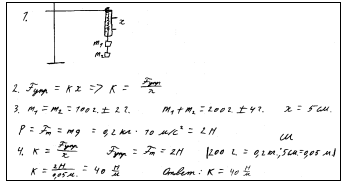 1.
x
m₁
m₂
2. Fупр = кх => К = Fупр/x
3. m₁ = m₂ = 100г ± 2г. m₁ + m₂ = 200г ± 4г. x = 5см.
P = Fт = mg = 0,2кг · 10 м/с² = 2Н
СИ
4. К = Fупр/x Fупр = Fт = 2Н |200г = 0,2кг; 5см = 0,05м|
К = 2Н/0,05м. = 40 Н/м Ответ: К = 40 Н/м